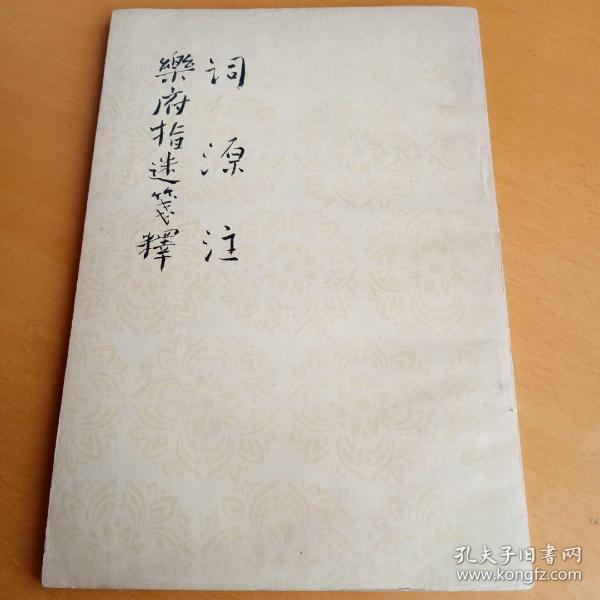 詞源注
樂府指迷箋釋
孔夫子旧書网
www.kongfz.com